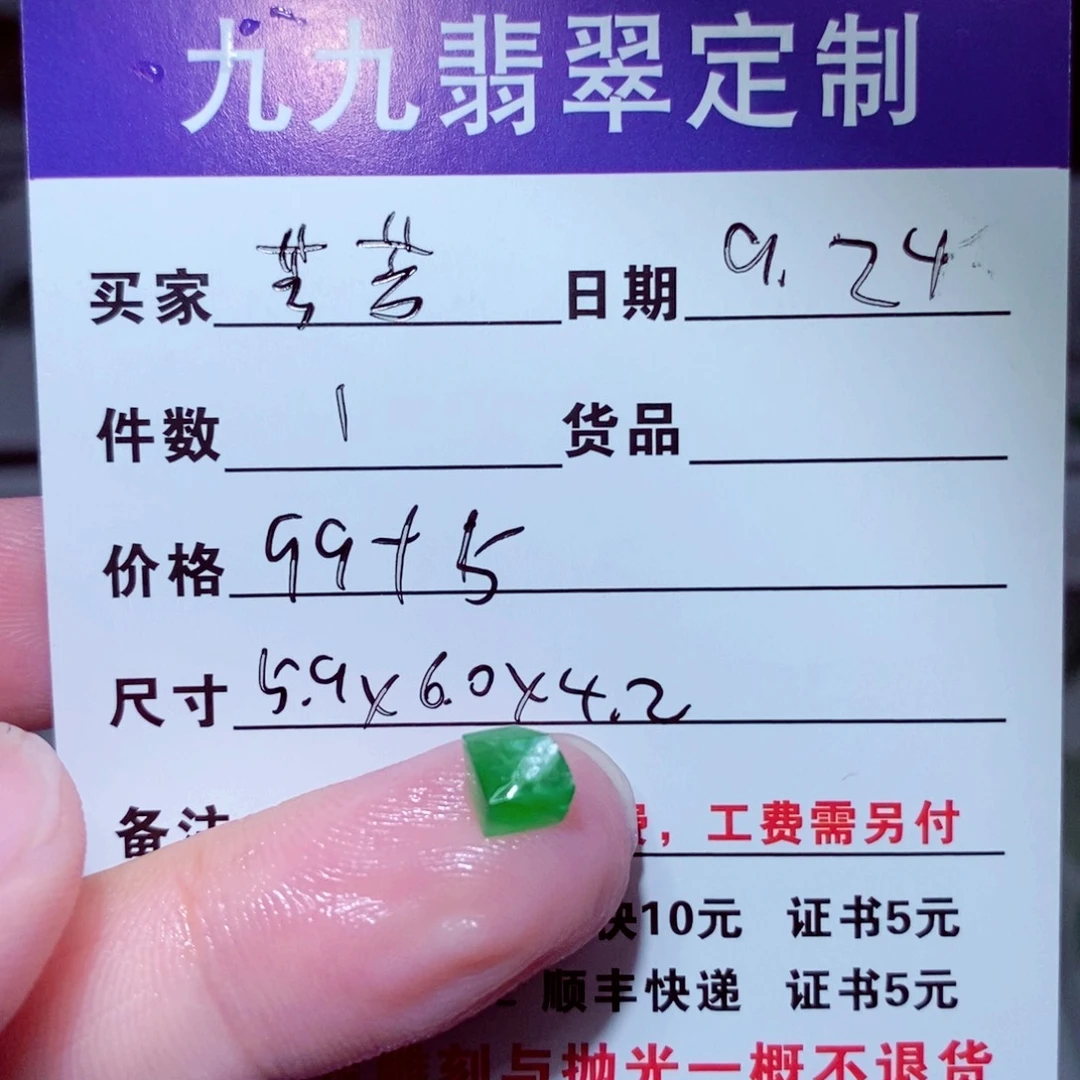 九九翡翠定制
买家 芸芸 日期 9.24
件数 1 货品
价格 99+5
尺寸 5.9×6.0×4.2
备注 费，工费需另付
快10元 证书5元
顺丰快递 证书5元
雕刻与抛光一概不退货